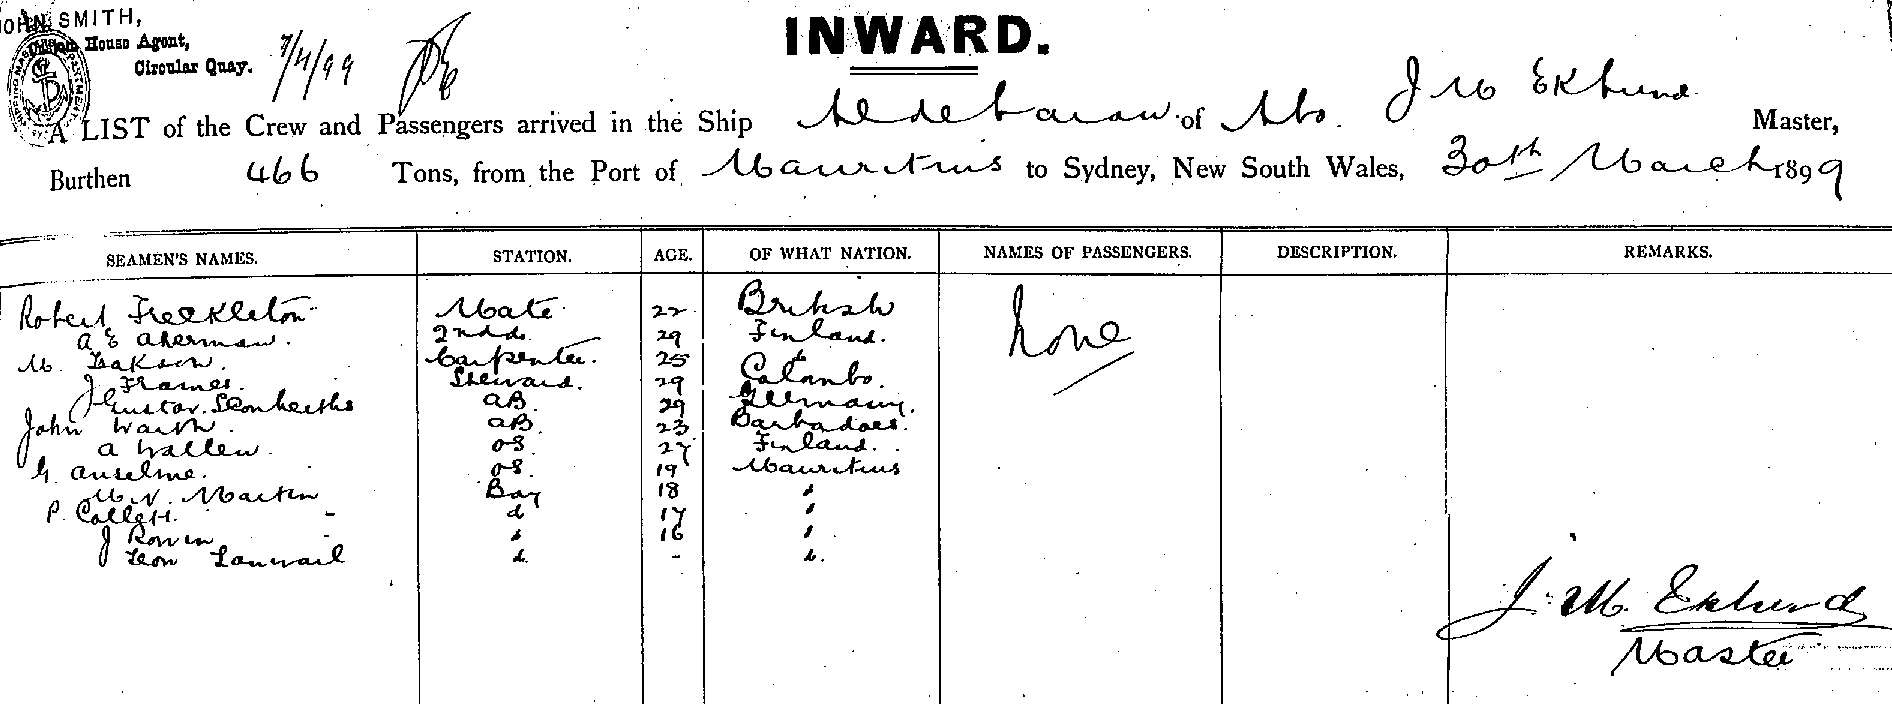 JOHN SMITH,
Custom House Agent,
Circular Quay.
7/4/99
INWARD.
A LIST of the Crew and Passengers arrived in the Ship Aldebaran of Abo. J M Eklund Master,
Burthen 466 Tons, from the Port of Mauritius to Sydney, New South Wales, 30th March 1899
SEAMEN'S NAMES. STATION. AGE. OF WHAT NATION. NAMES OF PASSENGERS. DESCRIPTION. REMARKS.
Robert Freckleton Mate 22 British None
A E Akerman. 2nd d 29 Finland.
M. Isakson. Carpenter. 25 d
J Frames. Steward. 29 Colombo.
Gustav. AB. 29 Germany.
John Warth. AB. 23 Barbadoes.
A Wallen. OS. 27 Finland.
G. Anselme. OS. 19 Mauritius
M. V. Martin Boy 18 "
P. Collett. d 17 "
J Rowin " 16 "
Leon d - d.
J. M. Eklund
Master